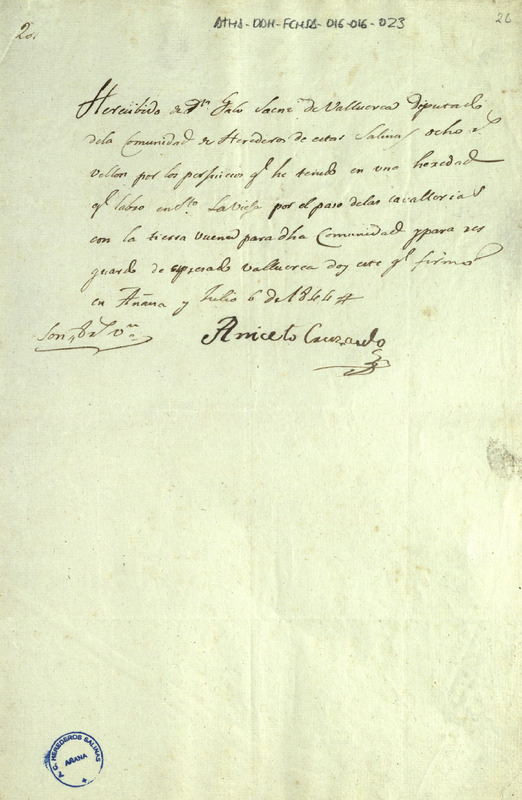 ATHA-DAH-FCHSA-016-016-023
26
He recibido de Dn Galo Saenz de Valluerca Diputado
dela Comunidad de Herederos de estas Salinas ocho rs
vellon por los perjuicios qe he tenido en una heredad
qe labro en Sto La Viega por el paso delas cavallerias
con la tierra buena para dha Comunidad y para res
guardo de espresado Valluerca doy este qe firmo
en Añana y Julio 6 de 1844
Son,, 8 rs vn
Aniceto Cruzado
T. C. HEREDEROS SALINAS
AÑANA